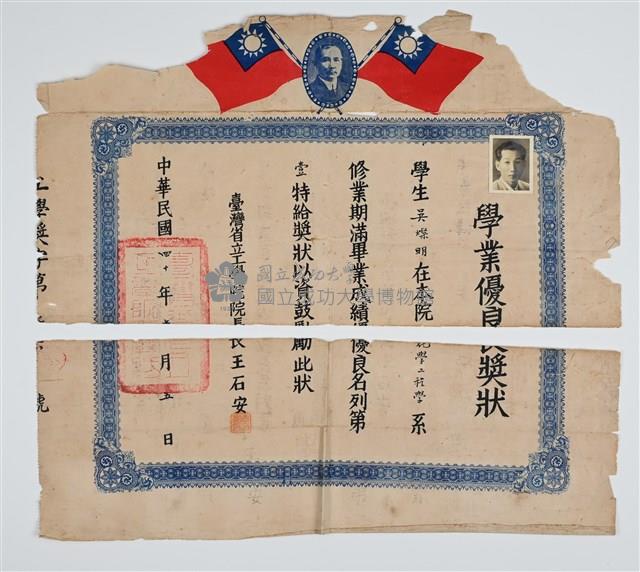 學業優良獎狀
學生吳燦明在本院化學工程學系
修業期滿畢業成績優良名列第
壹特給獎狀以資鼓勵此狀
臺灣省立工學院院長王石安
中華民國四十年 月 五日
工學獎字第 號
國立成功大學
國立成功大學博物館